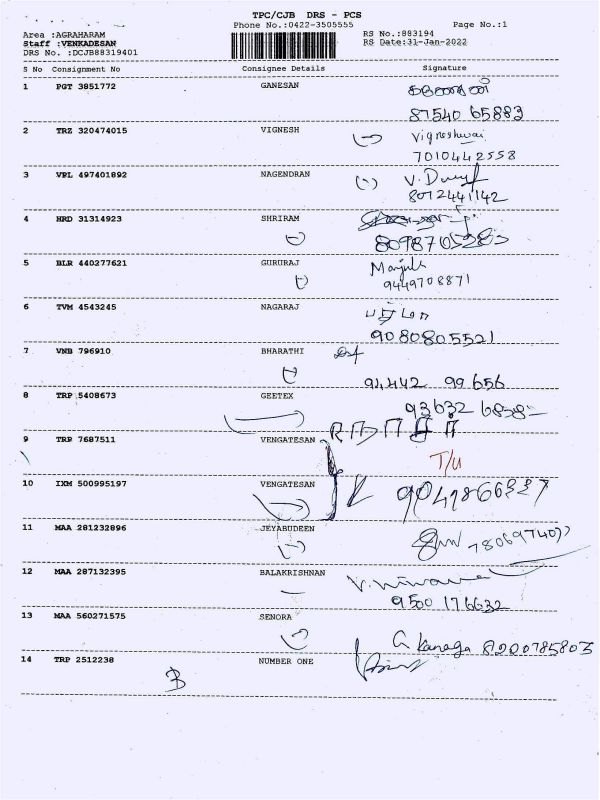 TPC/CJB DRS - PCS
Phone No.:0422-3505555 Page No.:1
Area :AGRAHARAM RS No.:883194
Staff :VENKADESAN RS Date:31-Jan-2022
DRS No. :DCJB88319401
S No Consignment No Consignee Details Signature
1 PGT 3851772 GANESAN
87540 65883
2 TRZ 320474015 VIGNESH Vigneshwari
7010442558
3 VPL 497401892 NAGENDRAN
8012441142
4 HRD 31314923 SHRIRAM
5 BLR 440277621 GURURAJ Manjula
9449708871
6 TVM 4543245 NAGARAJ
9080805521
7 VNB 796910 BHARATHI
94442 99656
8 TRP 5408673 GEETEX
93632
9 TRP 7687511 VENGATESAN
T/U
10 IXM 500995197 VENGATESAN
11 MAA 281232896 JEYABUDEEN
12 MAA 287132395 BALAKRISHNAN
9500 176632
13 MAA 560271575 SENORA
G Kanaga 8200785803
14 TRP 2512238 NUMBER ONE